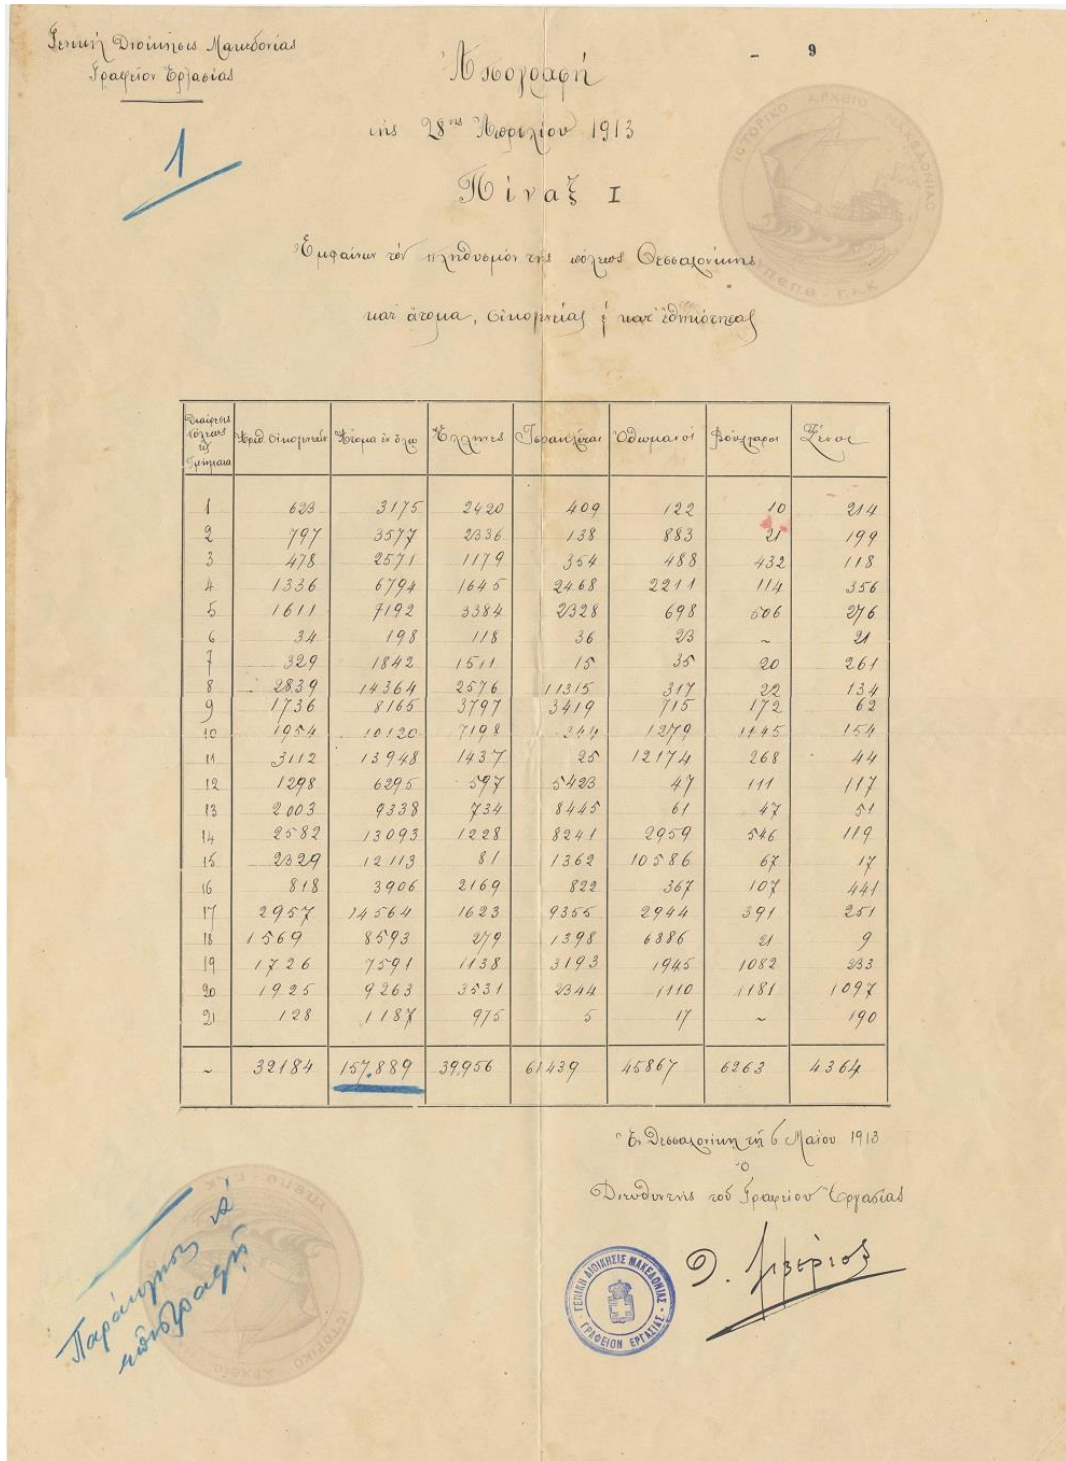 Γενική Διοίκησις Μακεδονίας
Γραφεῖον Ἐργασίας
1
9
Ἀπογραφή
τῆς 28ης Ἀπριλίου 1913
Πίναξ I
Ἐμφαίνων τὸν πληθυσμὸν τῆς πόλεως Θεσσαλονίκης
κατ' ἄτομα, οἰκογενείας & κατ' ἐθνικότητας
Διαίρεσις πόλεως εἰς τμήματα Ἀριθ. οἰκογενειῶν Ἄτομα ἐν ὅλῳ Ἕλληνες Ἰσραηλῖται Ὀθωμανοί Βούλγαροι Ξένοι
1 623 3175 2420 409 122 10 214
2 797 3577 2336 138 883 21 199
3 478 2571 1179 354 488 432 118
4 1336 6794 1645 2468 2211 114 356
5 1611 7192 3384 2328 698 506 276
6 34 198 118 36 23 ~ 21
7 329 1842 1511 15 35 20 261
8 2839 14364 2576 11315 317 22 134
9 1736 8165 3797 3419 715 172 62
10 1954 10120 7198 344 1279 1145 154
11 3112 13948 1437 25 12174 268 44
12 1298 6295 597 5423 47 111 117
13 2003 9338 734 8445 61 47 51
14 2582 13093 1228 8241 2959 546 119
15 2329 12113 81 1362 10586 67 17
16 818 3906 2169 822 367 107 441
17 2957 14564 1623 9355 2944 391 251
18 1569 8593 279 1398 6886 21 9
19 1726 7591 1138 3193 1945 1082 233
20 1925 9263 3531 2344 1110 1181 1097
21 128 1187 975 5 17 ~ 190
~ 32184 157.889 39,956 61439 45867 6263 4364
Ἐν Θεσσαλονίκῃ τῇ 6 Μαΐου 1913
Ὁ
Διευθυντὴς τοῦ Γραφείου Ἐργασίας
ΓΕΝΙΚΗ ΔΙΟΙΚΗΣΙΣ ΜΑΚΕΔΟΝΙΑΣ
ΓΡΑΦΕΙΟΝ ΕΡΓΑΣΙΑΣ
Παράκλησις νὰ
ἐπιστραφῇ
ΙΣΤΟΡΙΚΟ ΑΡΧΕΙΟ ΜΑΚΕΔΟΝΙΑΣ
ΥΠΕΠΘ - Γ.Α.Κ